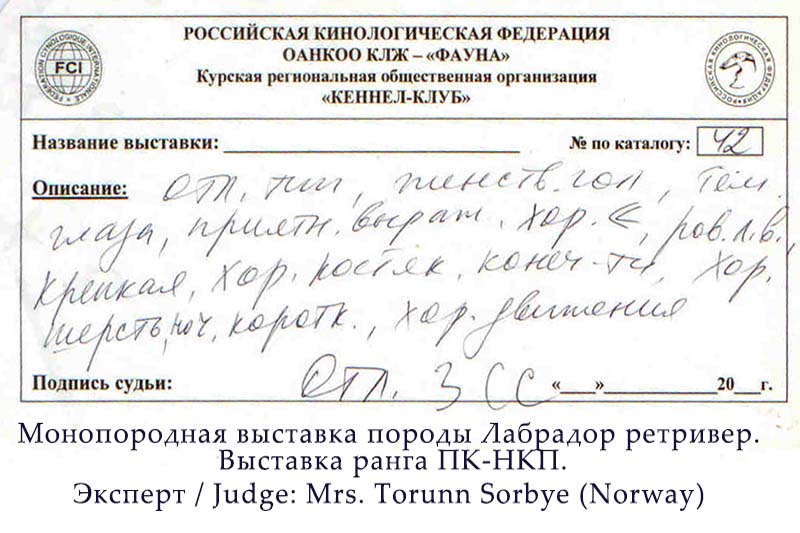 РОССИЙСКАЯ КИНОЛОГИЧЕСКАЯ ФЕДЕРАЦИЯ
ОАНКОО КЛЖ – «ФАУНА»
Курская региональная общественная организация
«КЕННЕЛ-КЛУБ»
FCI
Название выставки: № по каталогу: 42
Описание: отл. тип, женств. гол, тём.
глаза, приятн. выраж. хор. <, ров. л.в.,
крепкая, хор. костяк, конеч-ти, хор.
шерсть, коротк., хор. движения
Подпись судьи: Отл. 3 СС «___»__________20__г.
Монопородная выставка породы Лабрадор ретривер.
Выставка ранга ПК-НКП.
Эксперт / Judge: Mrs. Torunn Sorbye (Norway)